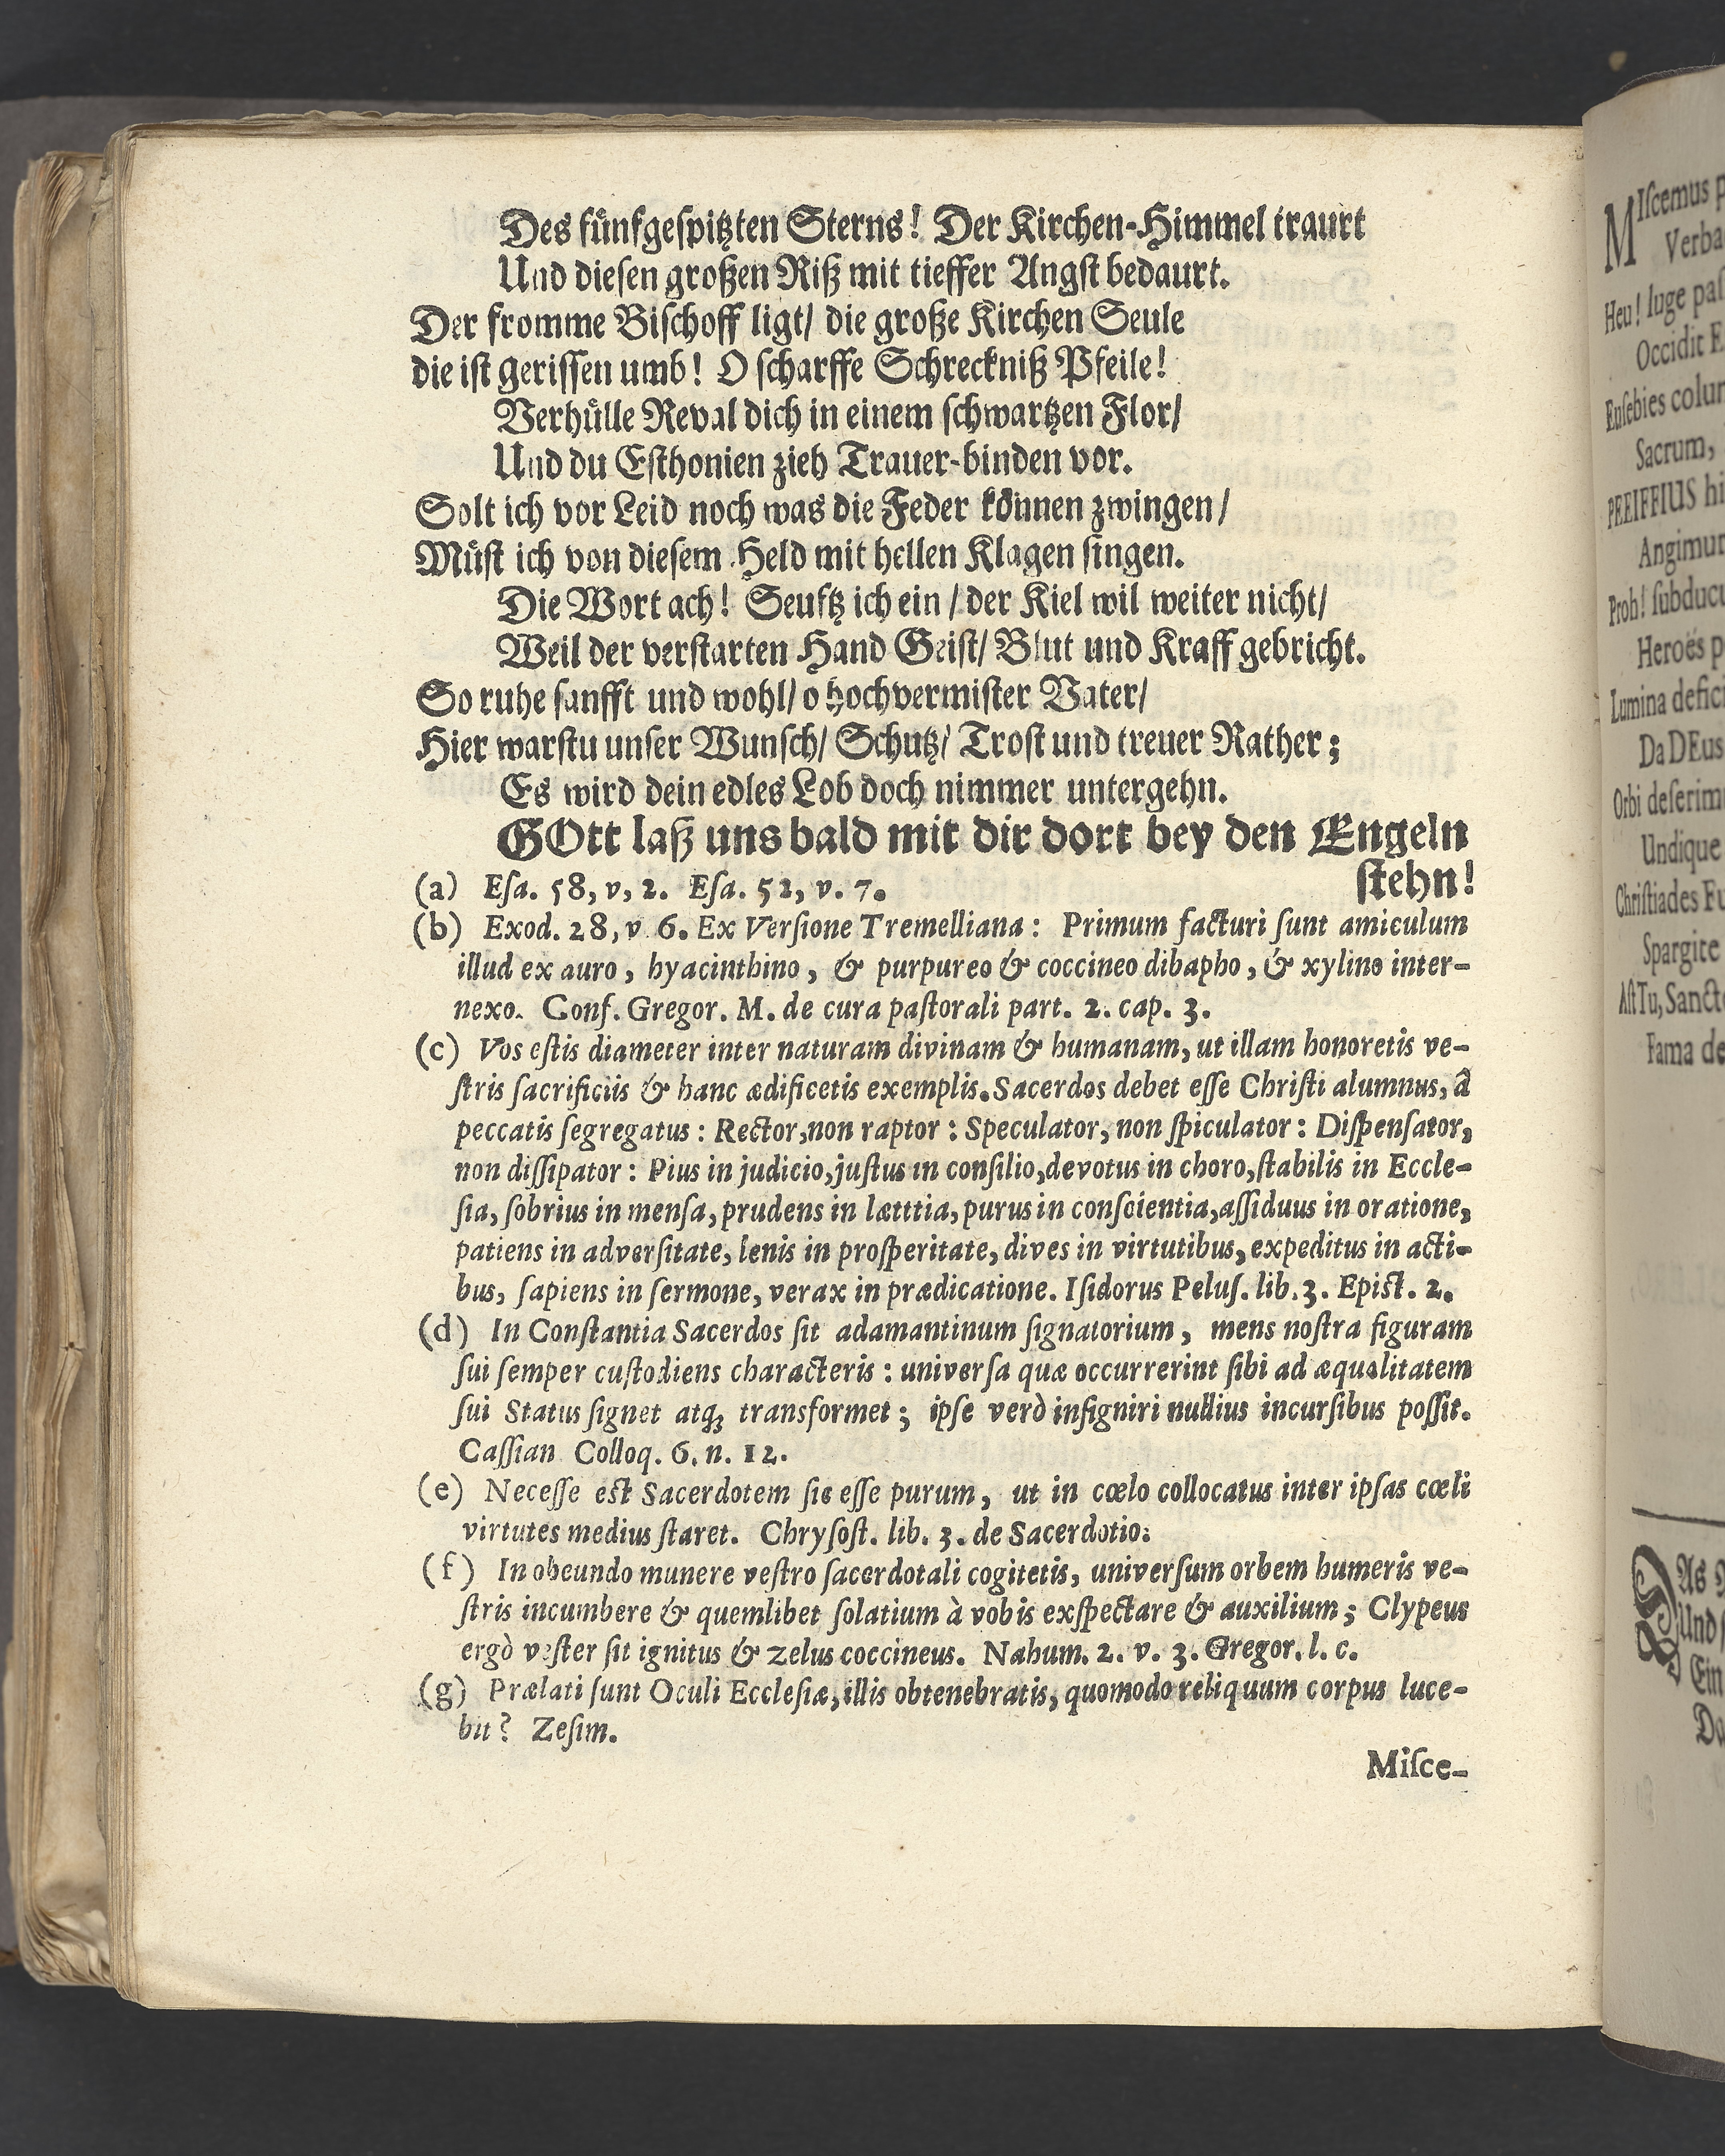 Des fünfgeſpitzten Sterns! Der Kirchen-Himmel traurt
Und dieſen großen Riß mit tieffer Angſt bedaurt.
Der fromme Biſchoff ligt/ die große Kirchen Seule
die iſt geriſſen umb! O ſcharffe Schreckniß Pfeile!
Verhülle Reval dich in einem ſchwartzen Flor/
Und du Eſthonien zieh Trauer-binden vor.
Solt ich vor Leid noch was die Feder können zwingen/
Müſt ich von dieſem Held mit hellen Klagen ſingen.
Die Wort ach! Seuftz ich ein / der Kiel wil weiter nicht/
Weil der verſtarten Hand Geiſt/ Blut und Kraff gebricht.
So ruhe ſanfft und wohl/ o hochvermiſter Vater/
Hier warſtu unſer Wunſch/ Schutz/ Troſt und treuer Rather;
Es wird dein edles Lob doch nimmer untergehn.
GOtt laß uns bald mit dir dort bey den Engeln
ſtehn!
(a) Eſa. 58, v, 2. Eſa. 52, v. 7.
(b) Exod. 28, v 6. Ex Verſione Tremelliana: Primum facturi ſunt amiculum
illud ex auro, hyacinthino, & purpureo & coccineo dibapho, & xylino inter-
nexo. Conf. Gregor. M. de cura paſtorali part. 2. cap. 3.
(c) Vos eſtis diameter inter naturam divinam & humanam, ut illam honoretis ve-
ſtris ſacrificiis & hanc ædificetis exemplis. Sacerdos debet eſſe Chriſti alumnus, â
peccatis ſegregatus: Rector, non raptor: Speculator, non ſpiculator: Diſpenſator,
non diſſipator: Pius in judicio, juſtus in conſilio, devotus in choro, ſtabilis in Eccle-
ſia, ſobrius in menſa, prudens in lætttia, purus in conſcientia, aſſiduus in oratione,
patiens in adverſitate, lenis in proſperitate, dives in virtutibus, expeditus in acti-
bus, ſapiens in ſermone, verax in prædicatione. Iſidorus Peluſ. lib. 3. Epiſt. 2.
(d) In Conſtantia Sacerdos ſit adamantinum ſignatorium, mens noſtra figuram
ſui ſemper cuſtodiens characteris: univerſa quæ occurrerint ſibi ad æqualitatem
ſui Status ſignet atq; transformet; ipſe verò inſigniri nullius incurſibus poſſit.
Caſſian Colloq. 6. n. 12.
(e) Neceſſe eſt Sacerdotem ſic eſſe purum, ut in cœlo collocatus inter ipſas cœli
virtutes medius ſtaret. Chryſoſt. lib. 3. de Sacerdotio.
(f) In obeundo munere veſtro ſacerdotali cogitetis, univerſum orbem humeris ve-
ſtris incumbere & quemlibet ſolatium à vobis exſpectare & auxilium; Clypeus
ergò veſter ſit ignitus & zelus coccineus. Nahum. 2. v. 3. Gregor. l. c.
(g) Prælati ſunt Oculi Eccleſiæ, illis obtenebratis, quomodo reliquum corpus luce-
bit? Zeſim.
Miſce-
MIſcemus
Verba
Heu! luge
Occidit
Euſebies
Sacrum,
PFEIFFIUS
Proh!
Heroës
Lumina
Da DEus
Orbi
Undique
Chriſtiades
Spargite
Aſt Tu,
Fama
DAs
Und
Ein